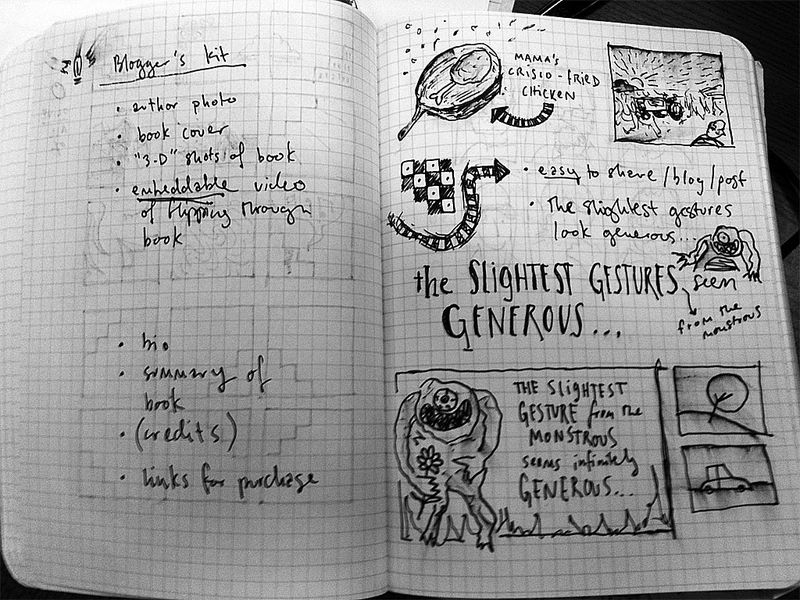 Blogger's kit
• author photo
• book cover
• "3-D" shots of book
• embeddable video
of flipping through
book
• bio
• summary of
book
• (credits)
• links for purchase
MAMA'S
CRISCO-FRIED
CHICKEN
• easy to share/blog/post
• The slightest gestures
look generous...
the SLIGHTEST GESTURES seem
GENEROUS...
from the
monstrous
THE SLIGHTEST
GESTURE from the
MONSTROUS
seems infinitely
GENEROUS...